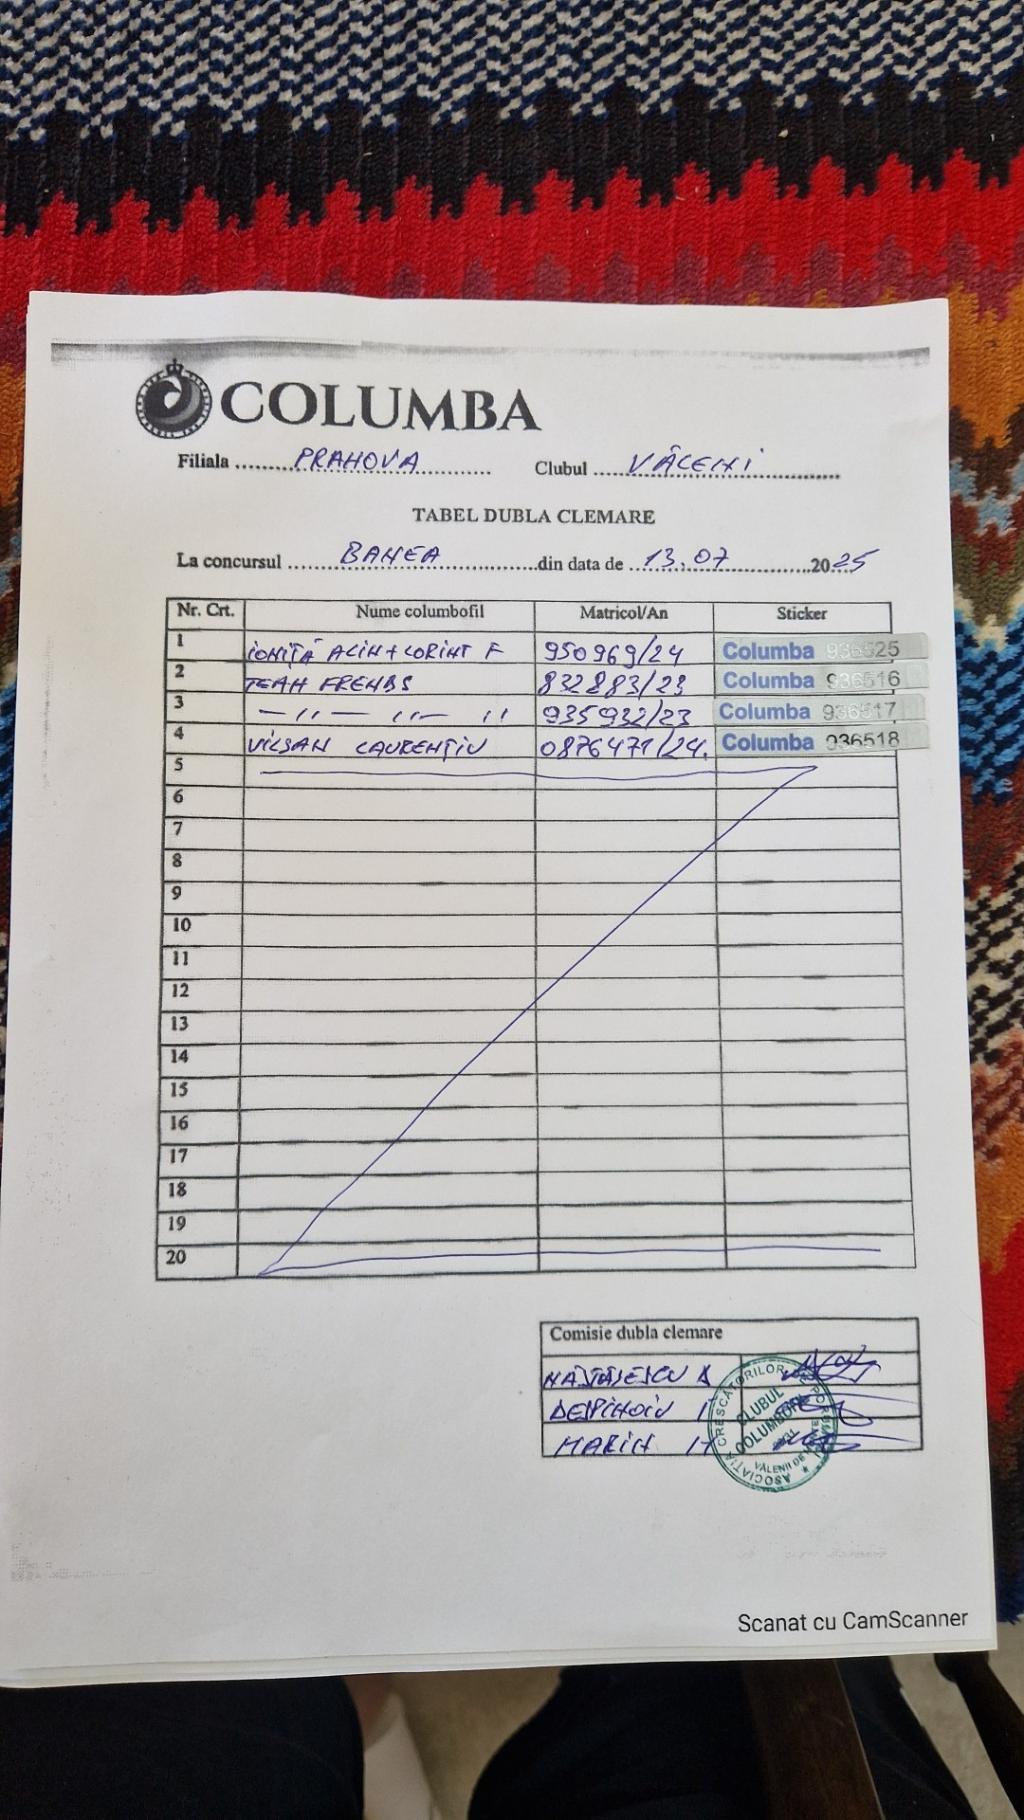 COLUMBA
Filiala ......... PRAHOVA ......... Clubul ... VĂLENI .........
TABEL DUBLA CLEMARE
La concursul ......... BANEA ......... din data de .. 13.07 ......... 2025
Nr. Crt. Nume columbofil Matricol/An Sticker
1 IONIȚĂ ALIN + CORINT F 950969/24 Columba 936525
2 TEAM FRENDS 832883/23 Columba 936516
3 — ,, — ,, — ,, 935932/23 Columba 936517
4 VÎLSAN LAURENȚIU 0876471/24. Columba 936518
5
6
7
8
9
10
11
12
13
14
15
16
17
18
19
20
Comisie dubla clemare
NĂSTĂSESCU A
DESPINOIU I
MARIN
ASOCIAȚIA CRESCĂTORILOR
CLUBUL
COLUMBOFIL
VĂLENII DE
Scanat cu CamScanner